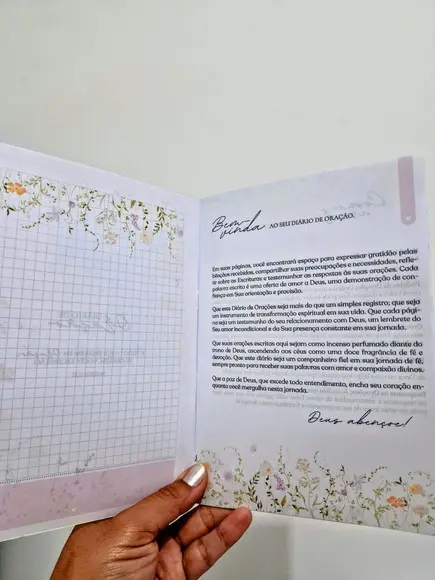 Bem-vinda AO SEU DIÁRIO DE ORAÇÃO.
Em suas páginas, você encontrará espaço para expressar gratidão pelas
bênçãos recebidas, compartilhar suas preocupações e necessidades, refle-
tir sobre as Escrituras e testemunhar as respostas às suas orações. Cada
palavra escrita é uma oferta de amor a Deus, uma demonstração de con-
fiança em Sua orientação e provisão.
Que esse Diário de Orações seja mais do que um simples registro; que seja
um instrumento de transformação espiritual em sua vida. Que cada pági-
na seja um testemunho do seu relacionamento com Deus, um lembrete do
Seu amor incondicional e da Sua presença constante em sua jornada.
Que suas orações escritas aqui sejam como incenso perfumado diante do
trono de Deus, ascendendo aos céus como uma doce fragrância de fé e
devoção. Que este diário seja um companheiro fiel em sua jornada de fé,
sempre pronto para receber suas palavras com amor e compaixão divinos.
Que a paz de Deus, que excede todo entendimento, encha seu coração en-
quanto você mergulha nesta jornada.
Deus abençoe!